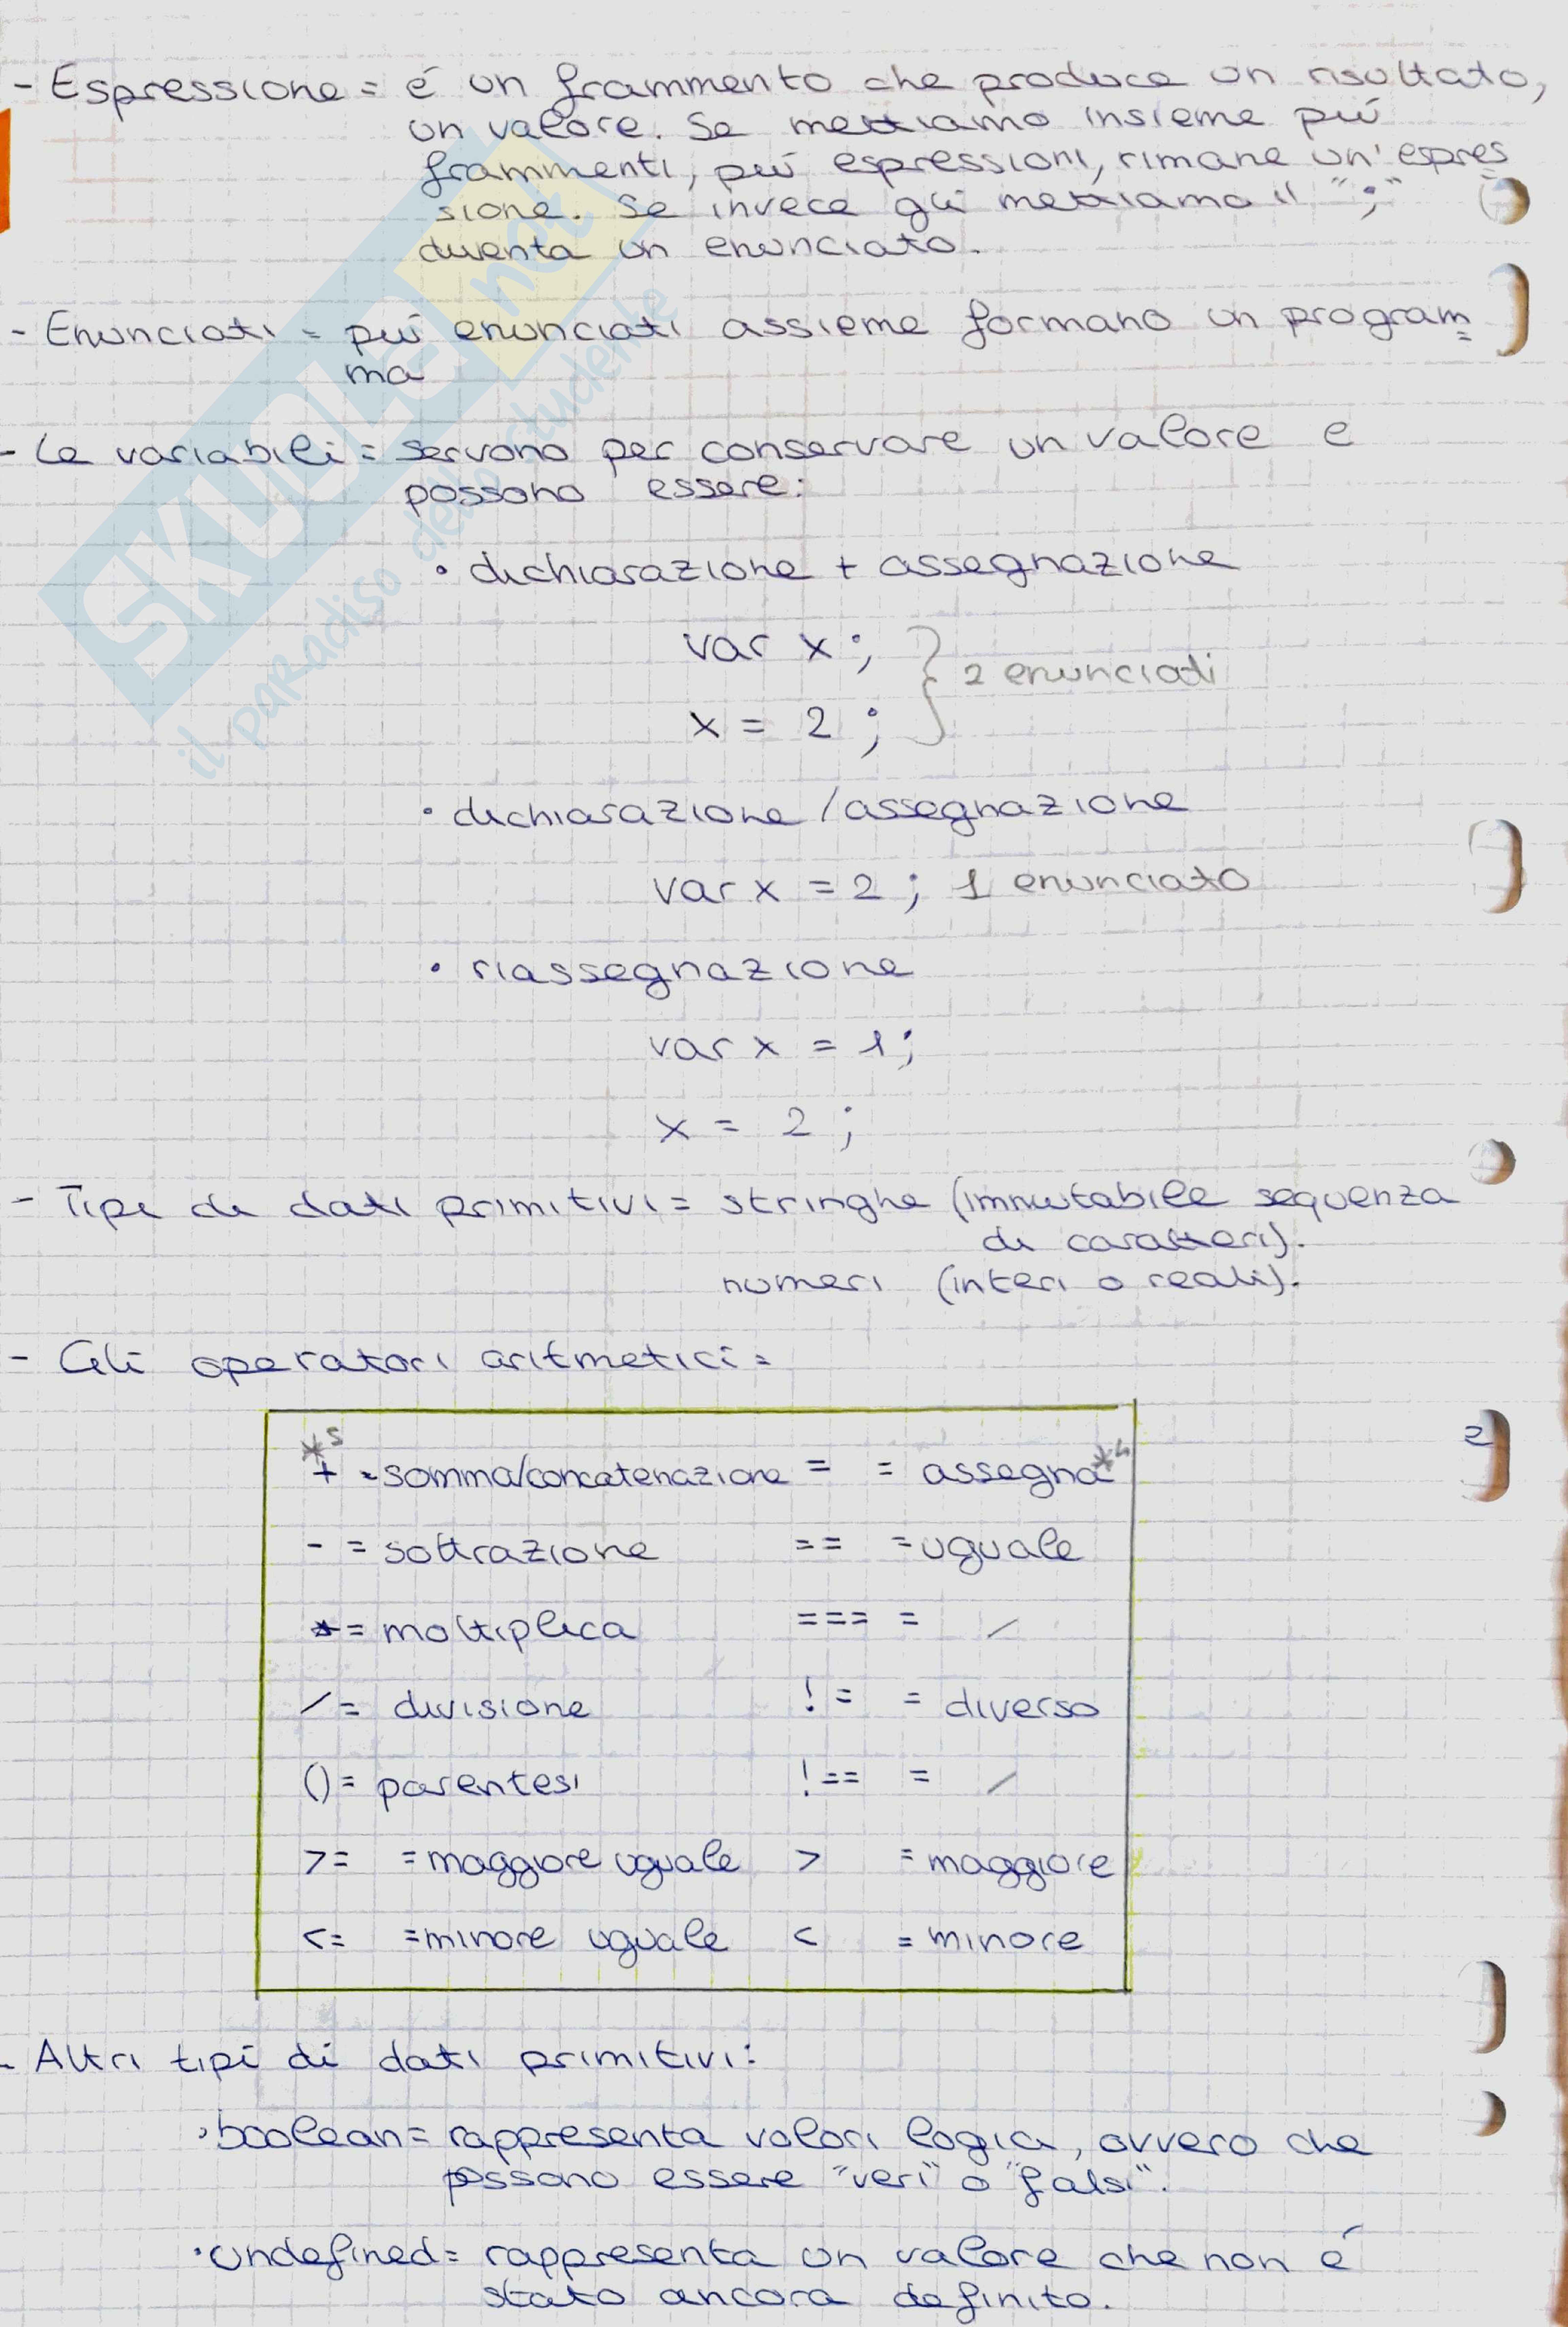 - Espressione = é un frammento che produce un risultato,
un valore. Se mettiamo insieme piú
frammenti, piú espressioni, rimane un'espres
sione. Se invece gli mettiamo il ";"
diventa un enunciato.
- Enunciati = piú enunciati assieme formano un program=
ma
- Le variabili = servono per conservare un valore e
possono essere:
• dichiarazione + assegnazione
var x ;
x = 2 ;
} 2 enunciati
• dichiarazione / assegnazione
var x = 2 ; 1 enunciato
• riassegnazione
var x = 1 ;
x = 2 ;
- Tipi di dati primitivi = stringhe (immutabile sequenza
di caratteri).
numeri (interi o reali).
- Gli operatori aritmetici =
*5
+ = somma/concatenazione = = assegna *4
- = sottrazione == = uguale
* = moltiplica === = /
/ = divisione != = diverso
() = parentesi !== = /
>= = maggiore uguale > = maggiore
<= = minore uguale < = minore
2
- Altri tipi di dati primitivi:
• boolean = rappresenta valori logici, ovvero che
possono essere "veri" o "falsi".
• undefined = rappresenta un valore che non é
stato ancora definito.
SKUOLA.net
il paradiso dello studente